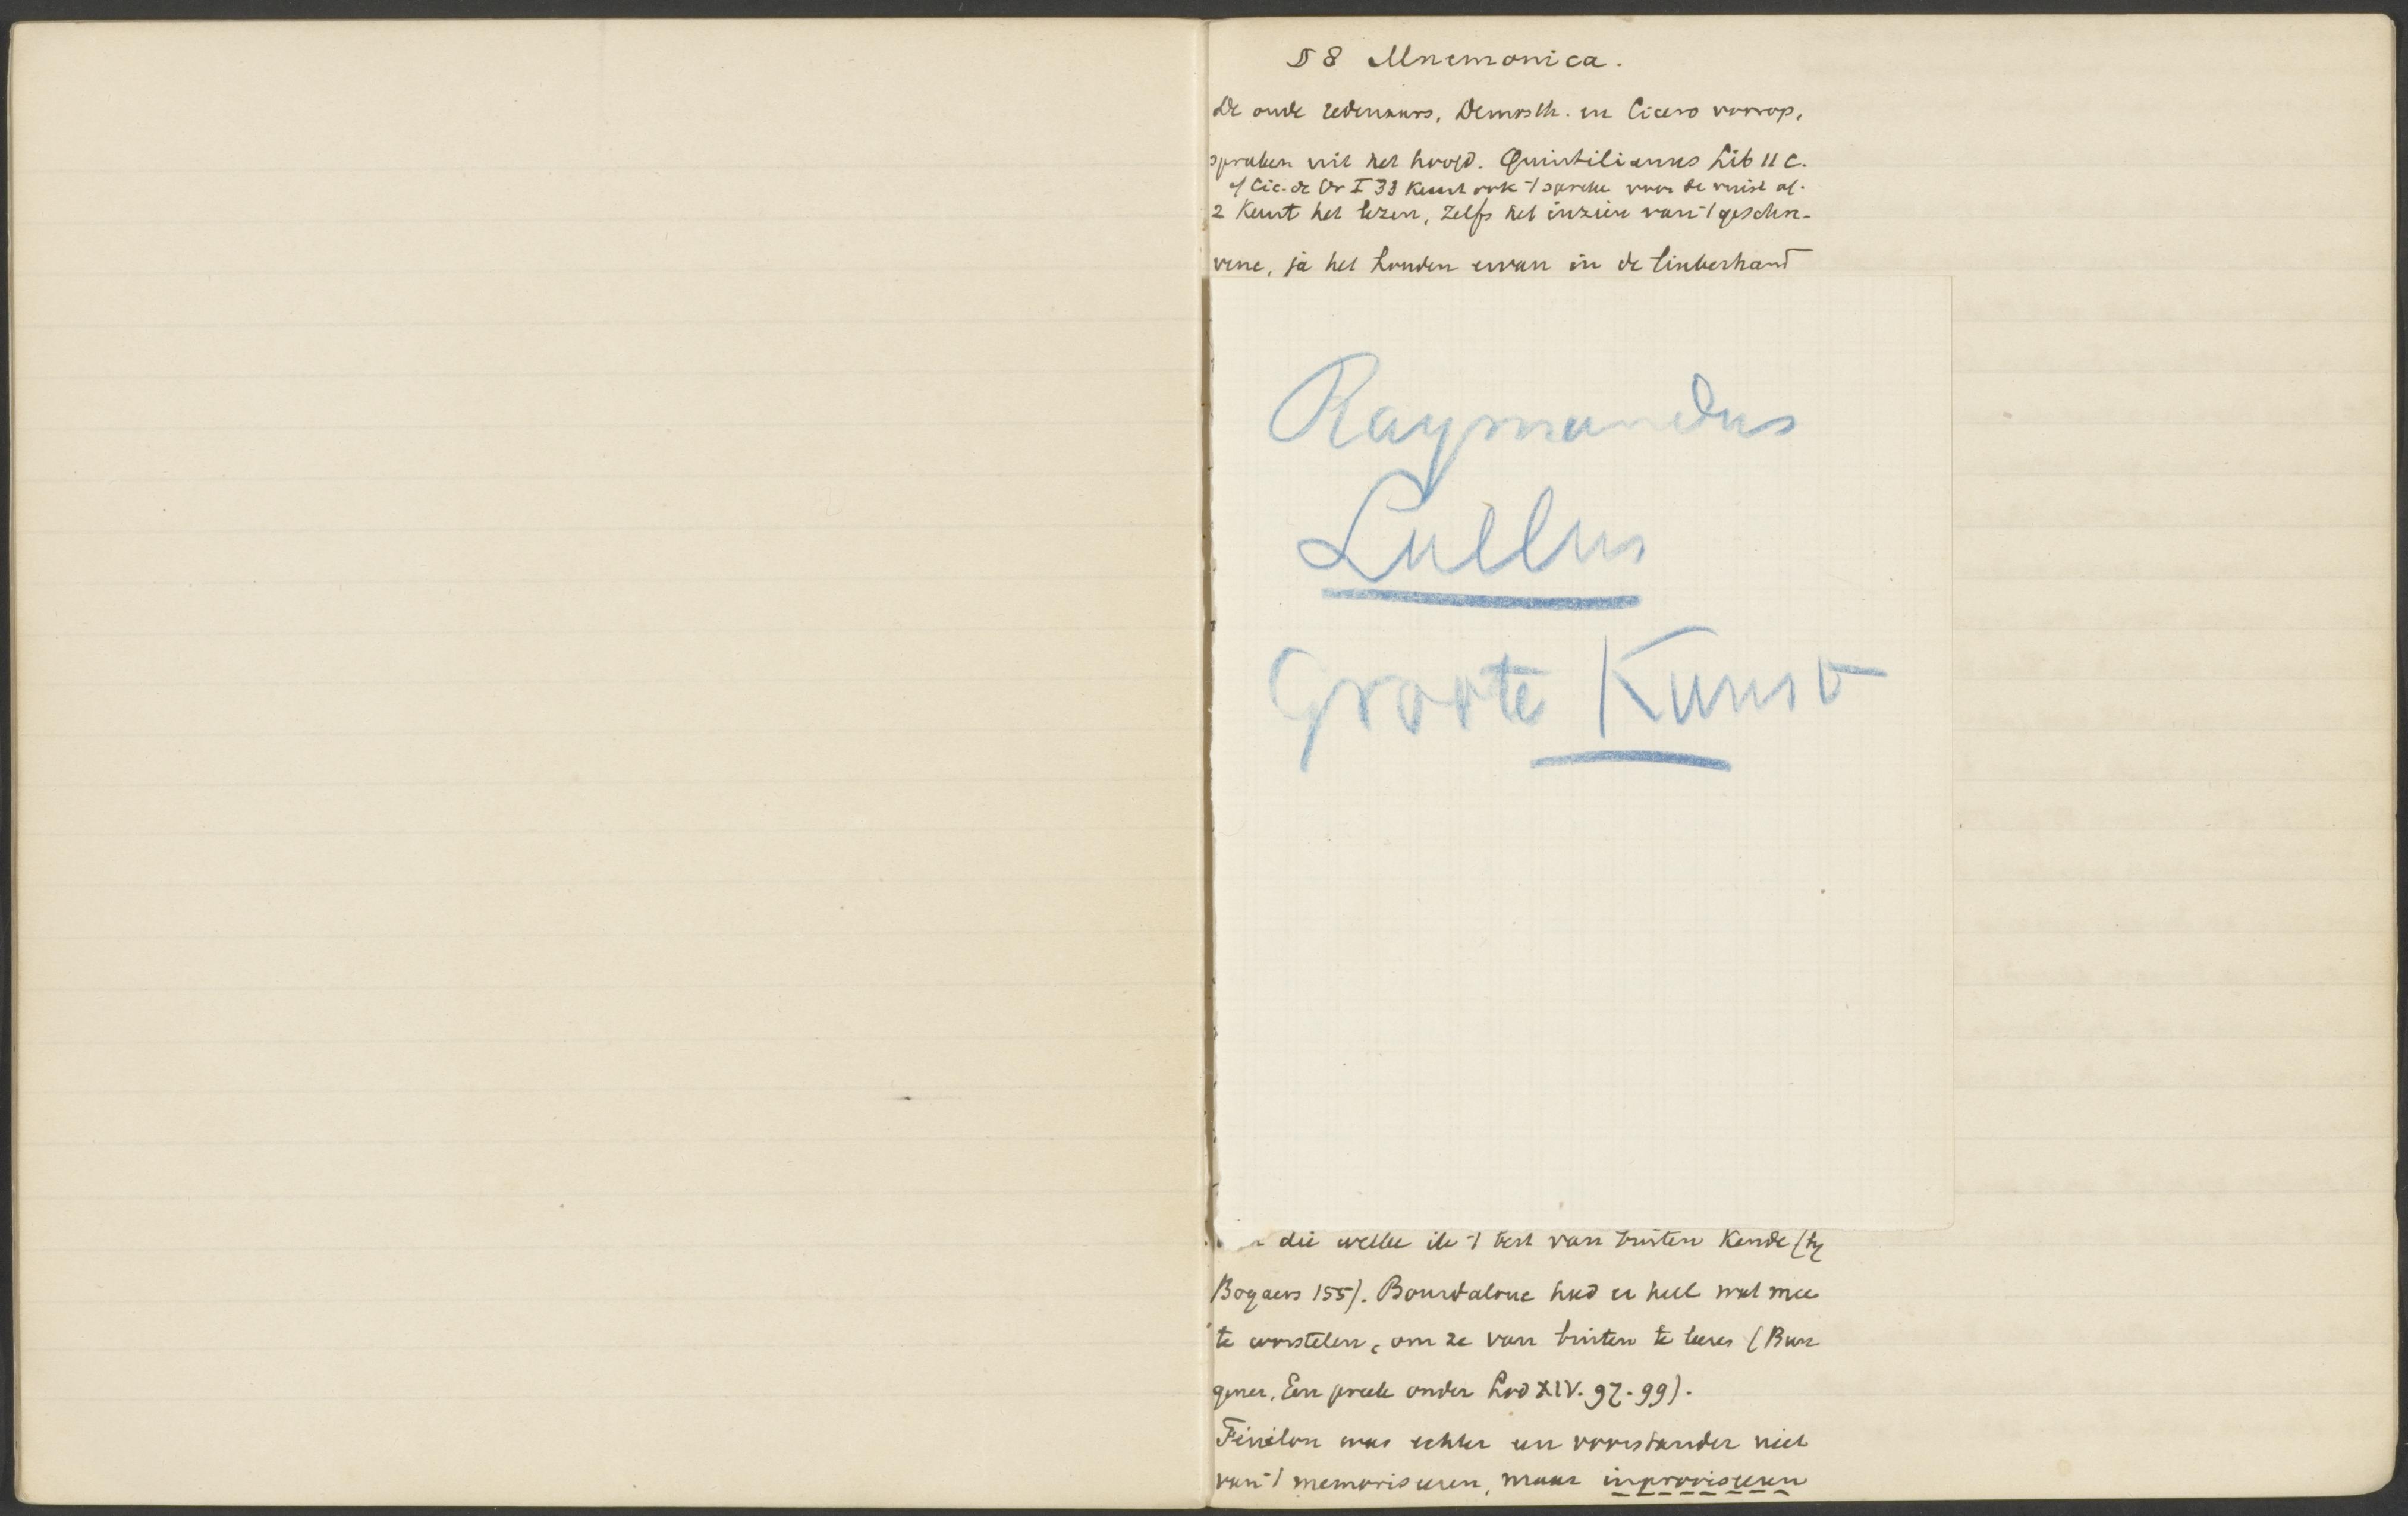 § 8 Mnemonica.
De oude redenaars, Demosth. en Cicero voorop,
spraken uit het hoofd. Quintilianus Lib 11 c.
cf Cic. de Or I 33 Keurt ook 't spreken voor de vuist af.
2 Keurt het lezen, zelfs het inzien van 't geschre-
vene, ja het houden ervan in de linkerhand
Raymundus
Lullus
Groote Kunst
die welke ik 't best van buiten kende (bij
Bogaers 155). Bourdaloue had er heel wat mee
te worstelen, om ze van buiten te leeren (Bun
gener, Een preek onder Lod XIV. 97-99).
Fénélon was echter een voorstander niet
van 't memoriseren, maar improviseren